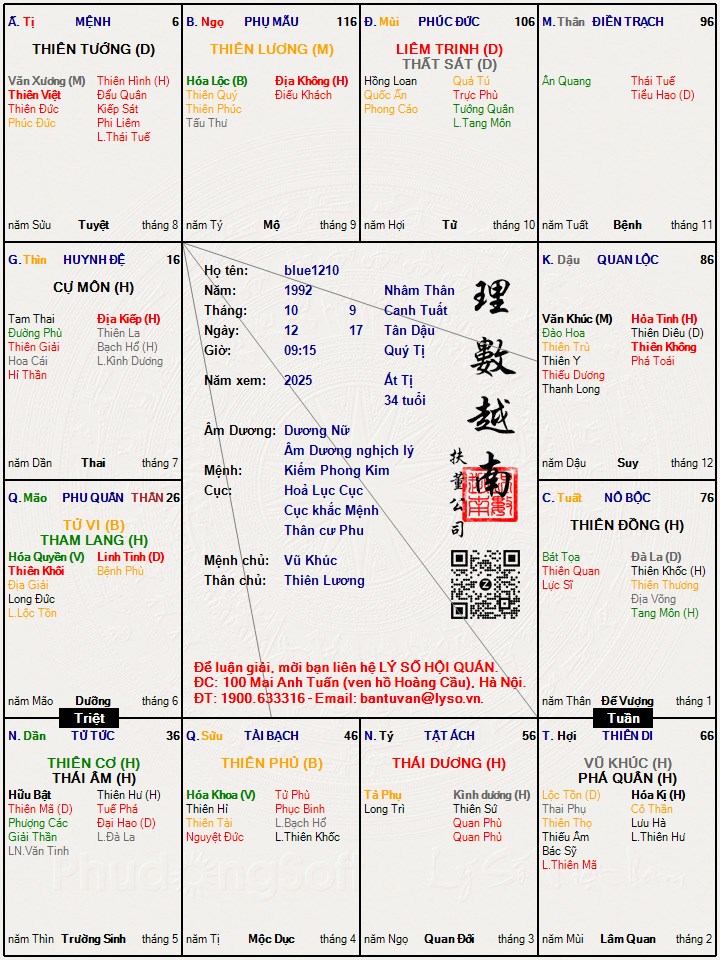 Ấ. Tị MỆNH 6
THIÊN TƯỚNG (D)
Văn Xương (M) Thiên Hình (H)
Thiên Việt Đẩu Quân
Thiên Đức Kiếp Sát
Phúc Đức Phi Liêm
L.Thái Tuế
năm Sửu Tuyệt tháng 8
B. Ngọ PHỤ MẪU 116
THIÊN LƯƠNG (M)
Hóa Lộc (B) Địa Không (H)
Thiên Quý Điếu Khách
Thiên Phúc
Tấu Thư
năm Tý Mộ tháng 9
Đ. Mùi PHÚC ĐỨC 106
LIÊM TRINH (D)
THẤT SÁT (D)
Hồng Loan Quả Tú
Quốc Ấn Trực Phù
Phong Cáo Tướng Quân
L.Tang Môn
năm Hợi Tử tháng 10
M. Thân ĐIỀN TRẠCH 96
Ân Quang Thái Tuế
Tiểu Hao (D)
năm Tuất Bệnh tháng 11
G. Thìn HUYNH ĐỆ 16
CỰ MÔN (H)
Tam Thai Địa Kiếp (H)
Đường Phù Thiên La
Thiên Giải Bạch Hổ (H)
Hoa Cái L.Kình Dương
Hỉ Thần
năm Dần Thai tháng 7
Họ tên: blue1210
Năm: 1992 Nhâm Thân
Tháng: 10 9 Canh Tuất
Ngày: 12 17 Tân Dậu
Giờ: 09:15 Quý Tị
Năm xem: 2025 Ất Tị
34 tuổi
Âm Dương: Dương Nữ
Âm Dương nghịch lý
Mệnh: Kiếm Phong Kim
Cục: Hoả Lục Cục
Cục khắc Mệnh
Thân cư Phu
Mệnh chủ: Vũ Khúc
Thân chủ: Thiên Lương
理數越南
扶董公司
Để luận giải, mời bạn liên hệ LÝ SỐ HỘI QUÁN.
ĐC: 100 Mai Anh Tuấn (ven hồ Hoàng Cầu), Hà Nội.
ĐT: 1900.633316 - Email: bantuvan@lyso.vn.
K. Dậu QUAN LỘC 86
Văn Khúc (M) Hỏa Tinh (H)
Đào Hoa Thiên Diêu (D)
Thiên Trù Thiên Không
Thiên Y Phá Toái
Thiếu Dương
Thanh Long
năm Dậu Suy tháng 12
Q. Mão PHU QUÂN THÂN 26
TỬ VI (B)
THAM LANG (H)
Hóa Quyền (V) Linh Tinh (D)
Thiên Khôi Bệnh Phù
Địa Giải
Long Đức
L.Lộc Tồn
năm Mão Dưỡng tháng 6
C. Tuất NÔ BỘC 76
THIÊN ĐỒNG (H)
Bát Tọa Đà La (D)
Thiên Quan Thiên Khốc (H)
Lực Sĩ Thiên Thương
Địa Võng
Tang Môn (H)
năm Thân Đế Vượng tháng 1
Triệt
Tuần
N. Dần TỬ TỨC 36
THIÊN CƠ (H)
THÁI ÂM (H)
Hữu Bật Thiên Hư (H)
Thiên Mã (D) Tuế Phá
Phượng Các Đại Hao (D)
Giải Thần L.Đà La
LN.Văn Tinh
năm Thìn Trường Sinh tháng 5
Q. Sửu TÀI BẠCH 46
THIÊN PHỦ (B)
Hóa Khoa (V) Tử Phù
Thiên Hỉ Phục Binh
Thiên Tài L.Bạch Hổ
Nguyệt Đức L.Thiên Khốc
năm Tị Mộc Dục tháng 4
N. Tý TẬT ÁCH 56
THÁI DƯƠNG (H)
Tả Phụ Kình dương (H)
Long Trì Thiên Sứ
Quan Phù
Quan Phủ
năm Ngọ Quan Đới tháng 3
T. Hợi THIÊN DI 66
VŨ KHÚC (H)
PHÁ QUÂN (H)
Lộc Tồn (D) Hóa Kị (H)
Thai Phụ Cô Thần
Thiên Thọ Lưu Hà
Thiếu Âm L.Thiên Hư
Bác Sỹ
L.Thiên Mã
năm Mùi Lâm Quan tháng 2